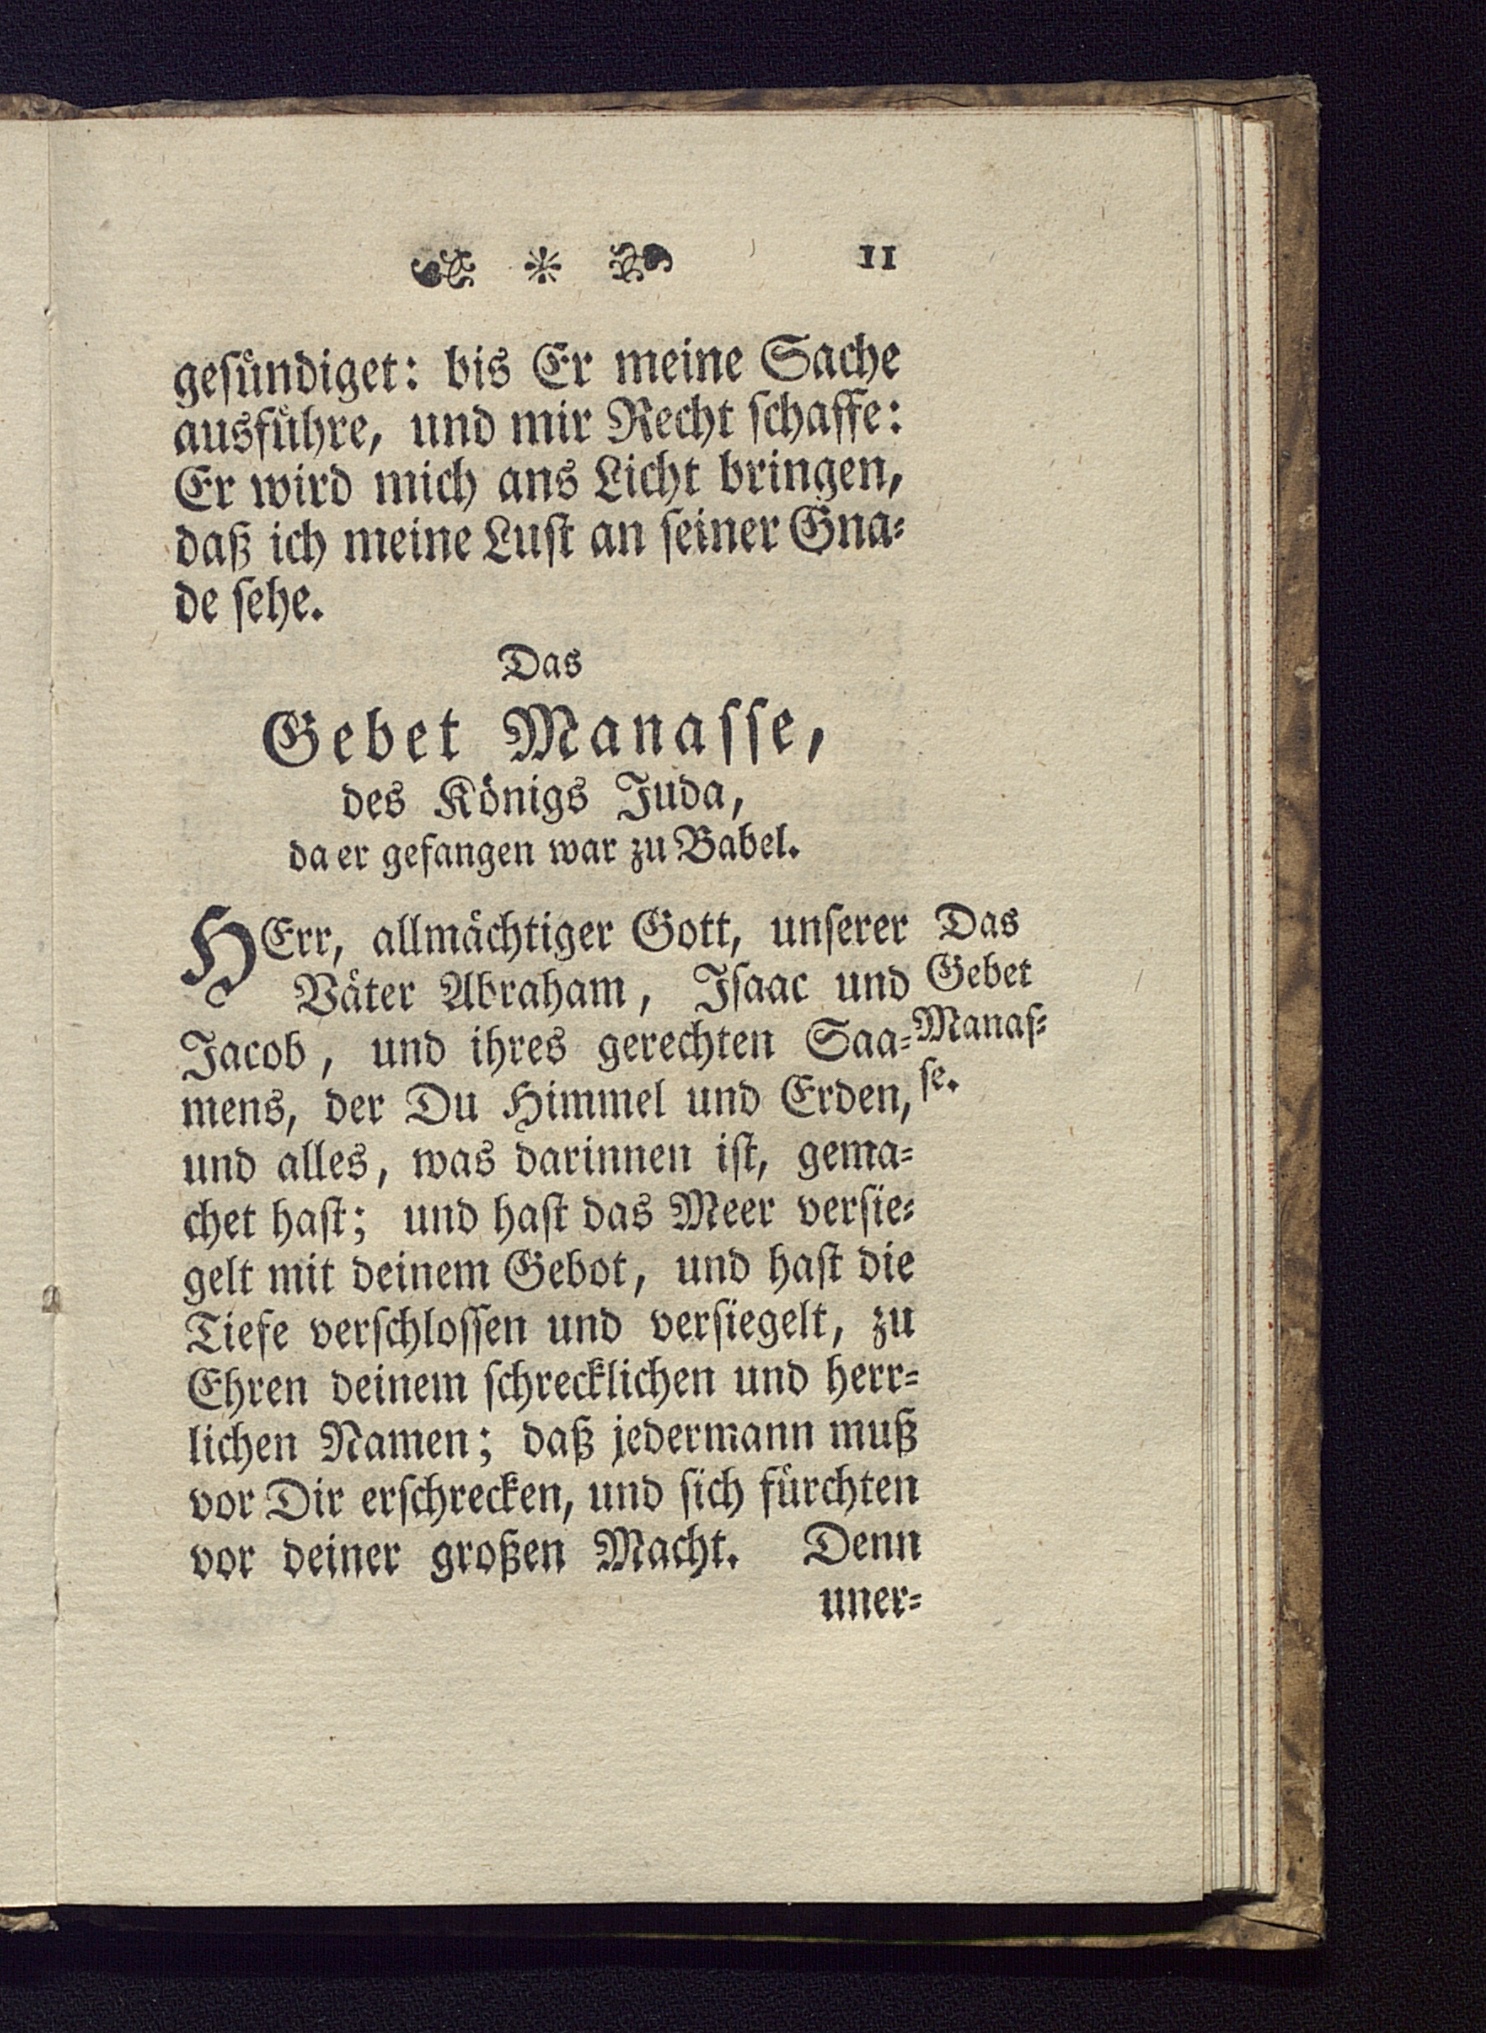 * 11
gesündiget: bis Er meine Sache
ausführe, und mir Recht schaffe:
Er wird mich ans Licht bringen,
daß ich meine Lust an seiner Gna-
de sehe.
Das
Gebet Manasse,
des Königs Juda,
da er gefangen war zu Babel.
HErr, allmächtiger Gott, unserer
Väter Abraham, Isaac und
Jacob, und ihres gerechten Saa-
mens, der Du Himmel und Erden,
und alles, was darinnen ist, gema-
chet hast; und hast das Meer versie-
gelt mit deinem Gebot, und hast die
Tiefe verschlossen und versiegelt, zu
Ehren deinem schrecklichen und herr-
lichen Namen; daß jedermann muß
vor Dir erschrecken, und sich fürchten
vor deiner großen Macht. Denn
uner-
Das
Gebet
Manas-
se.